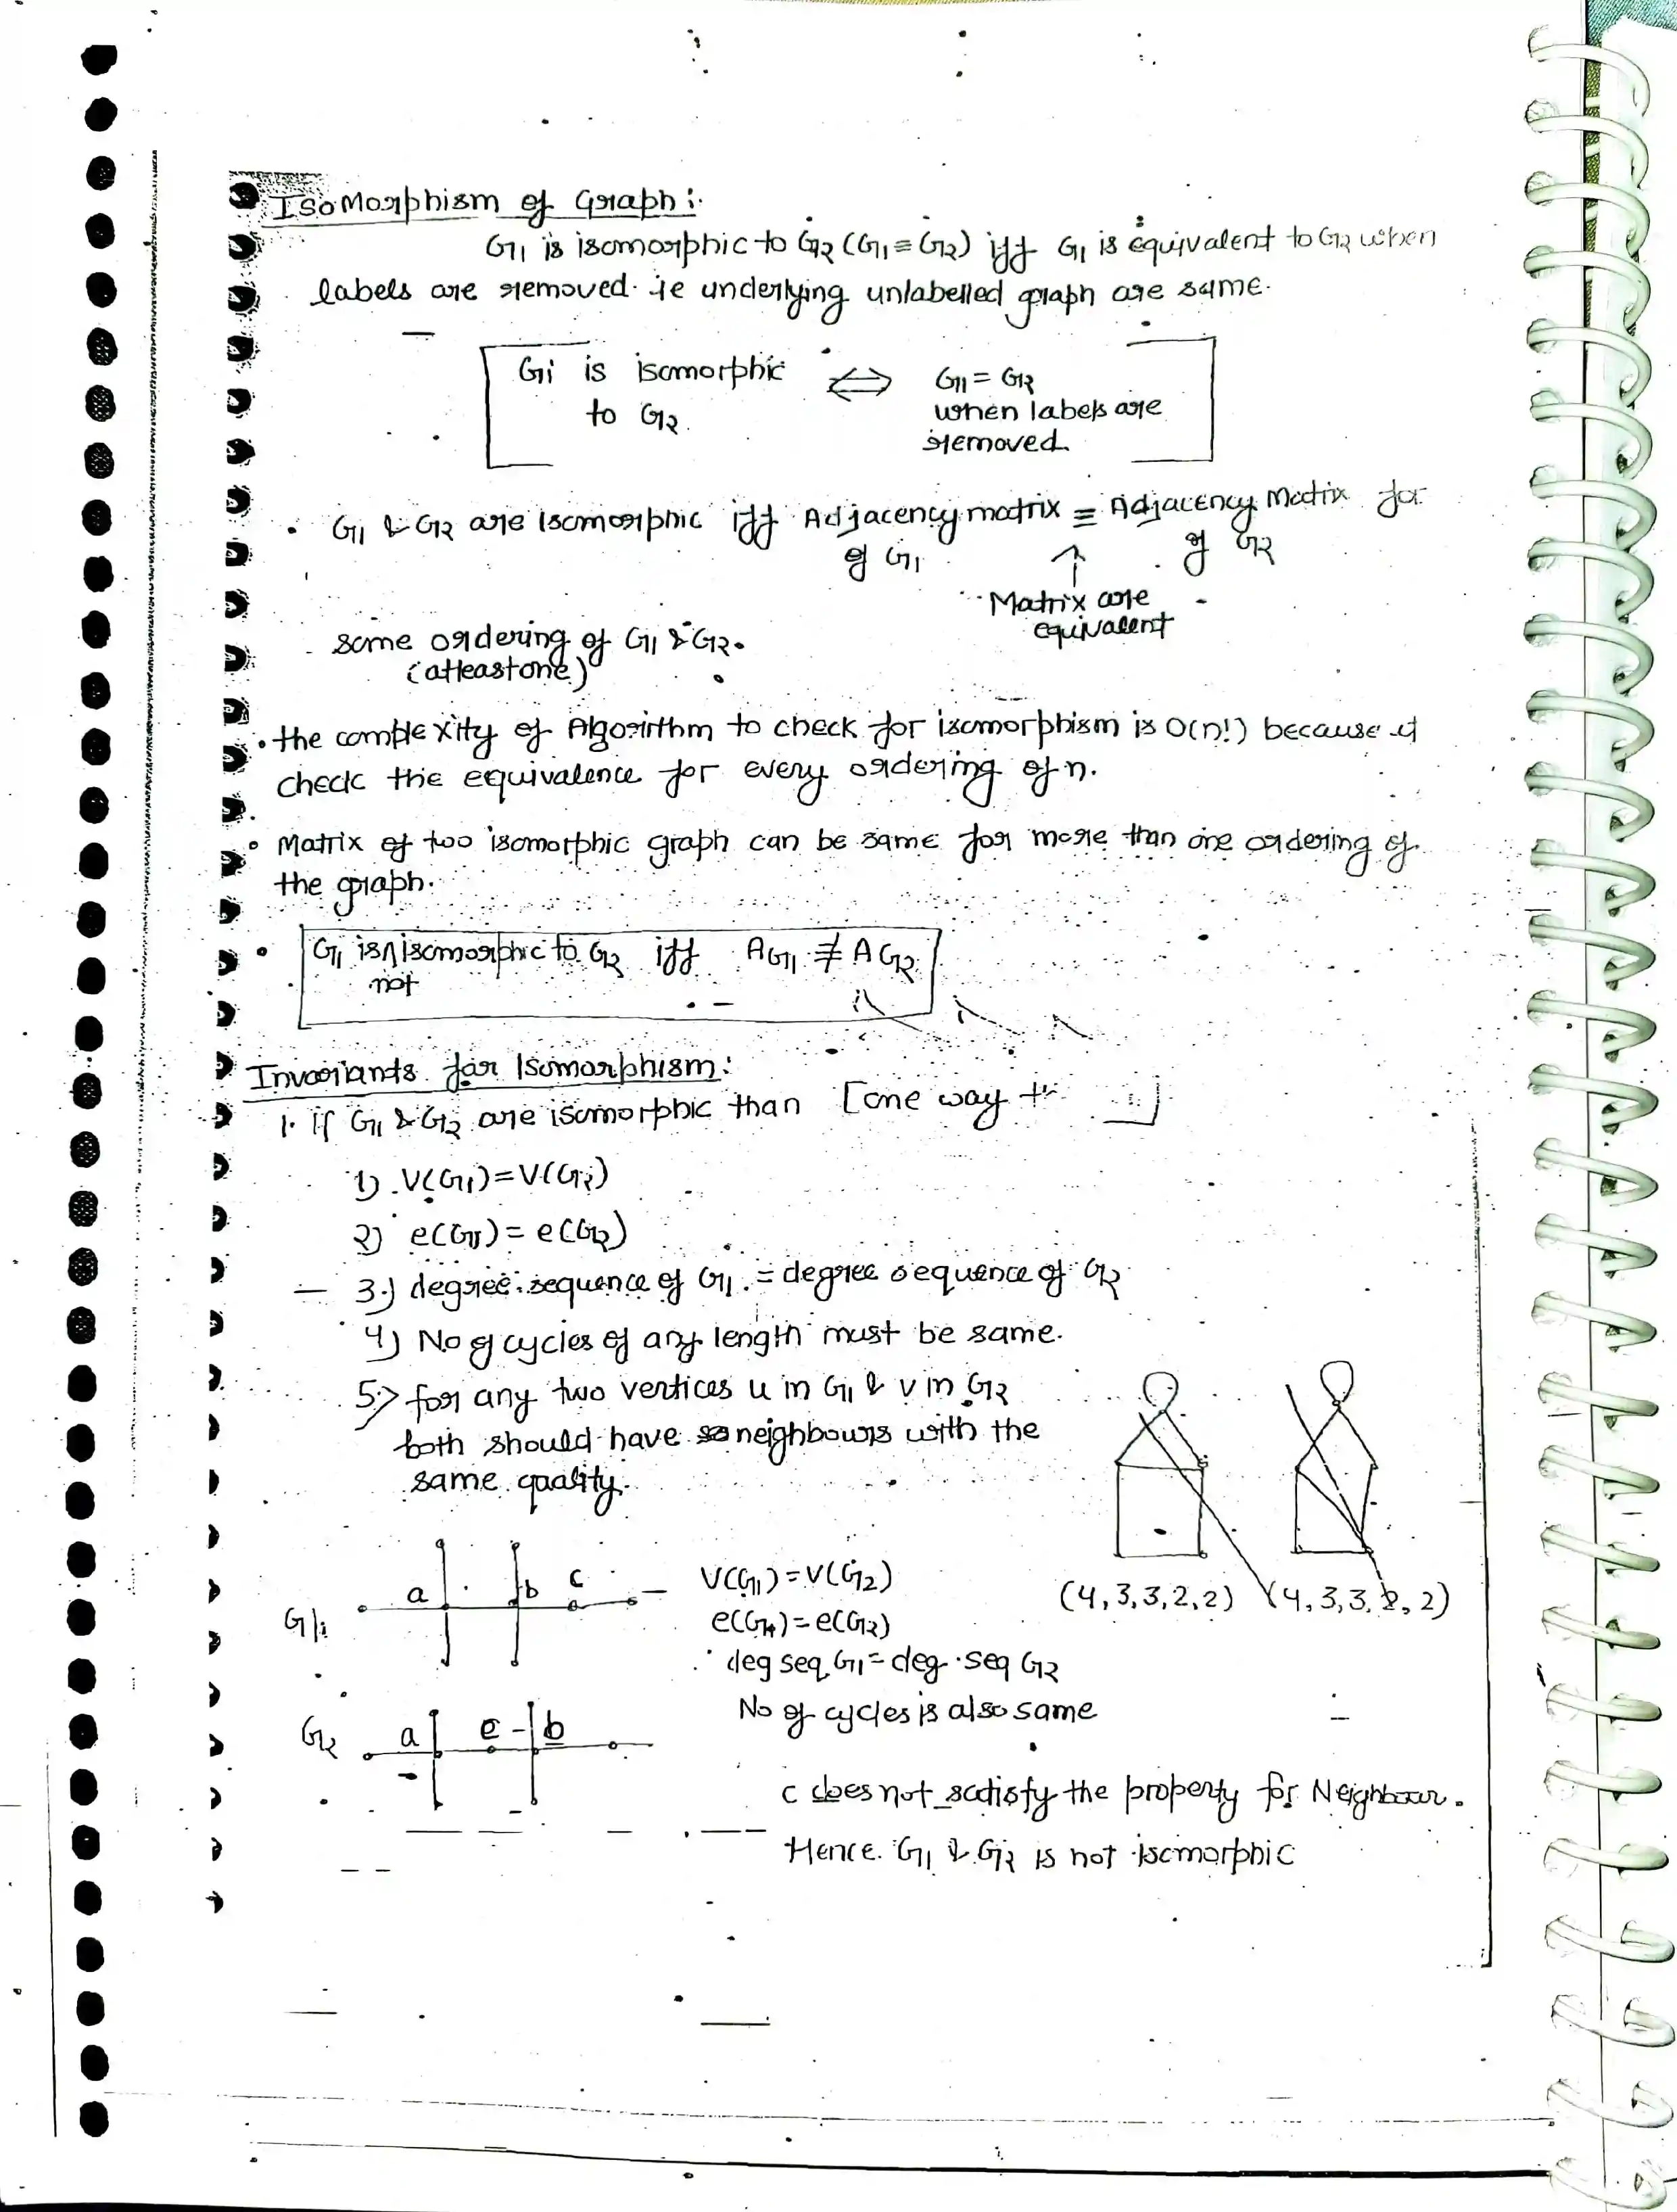 Isomorphism of Graph :
G1 is isomorphic to G2 (G1 ≡ G2) iff G1 is equivalent to G2 when
labels are removed. ie underlying unlabelled graph are same.
G1 is isomorphic ⇔ G1 = G2
to G2. when labels are
removed.
• G1 & G2 are isomorphic iff Adjacency matrix ≡ Adjacency Matrix for
of G1 ↑ of G2
Matrix are
equivalent
some ordering of G1 & G2.
(atleast one)
• the complexity of Algorithm to check for isomorphism is O(n!) because it
check the equivalence for every ordering of n.
• Matrix of two isomorphic graph can be same for more than one ordering of
the graph.
• G1 is not isomorphic to G2 iff AG1 ≢ AG2
Invariants for Isomorphism :
1. If G1 & G2 are isomorphic than [one way
1) V(G1) = V(G2)
2) e(G1) = e(G2)
3.) degree sequence of G1 = degree sequence of G2
4) No of cycles of any length must be same.
5) for any two vertices u in G1 & v in G2
both should have neighbours with the
same quality.
(4,3,3,2,2) (4,3,3,2,2)
G1 a b c
V(G1) = V(G2)
e(G1) = e(G2)
deg seq G1 = deg. seq G2
No of cycles is also same
G2 a c b
c does not satisfy the property for Neighbour.
Hence G1 & G2 is not isomorphic